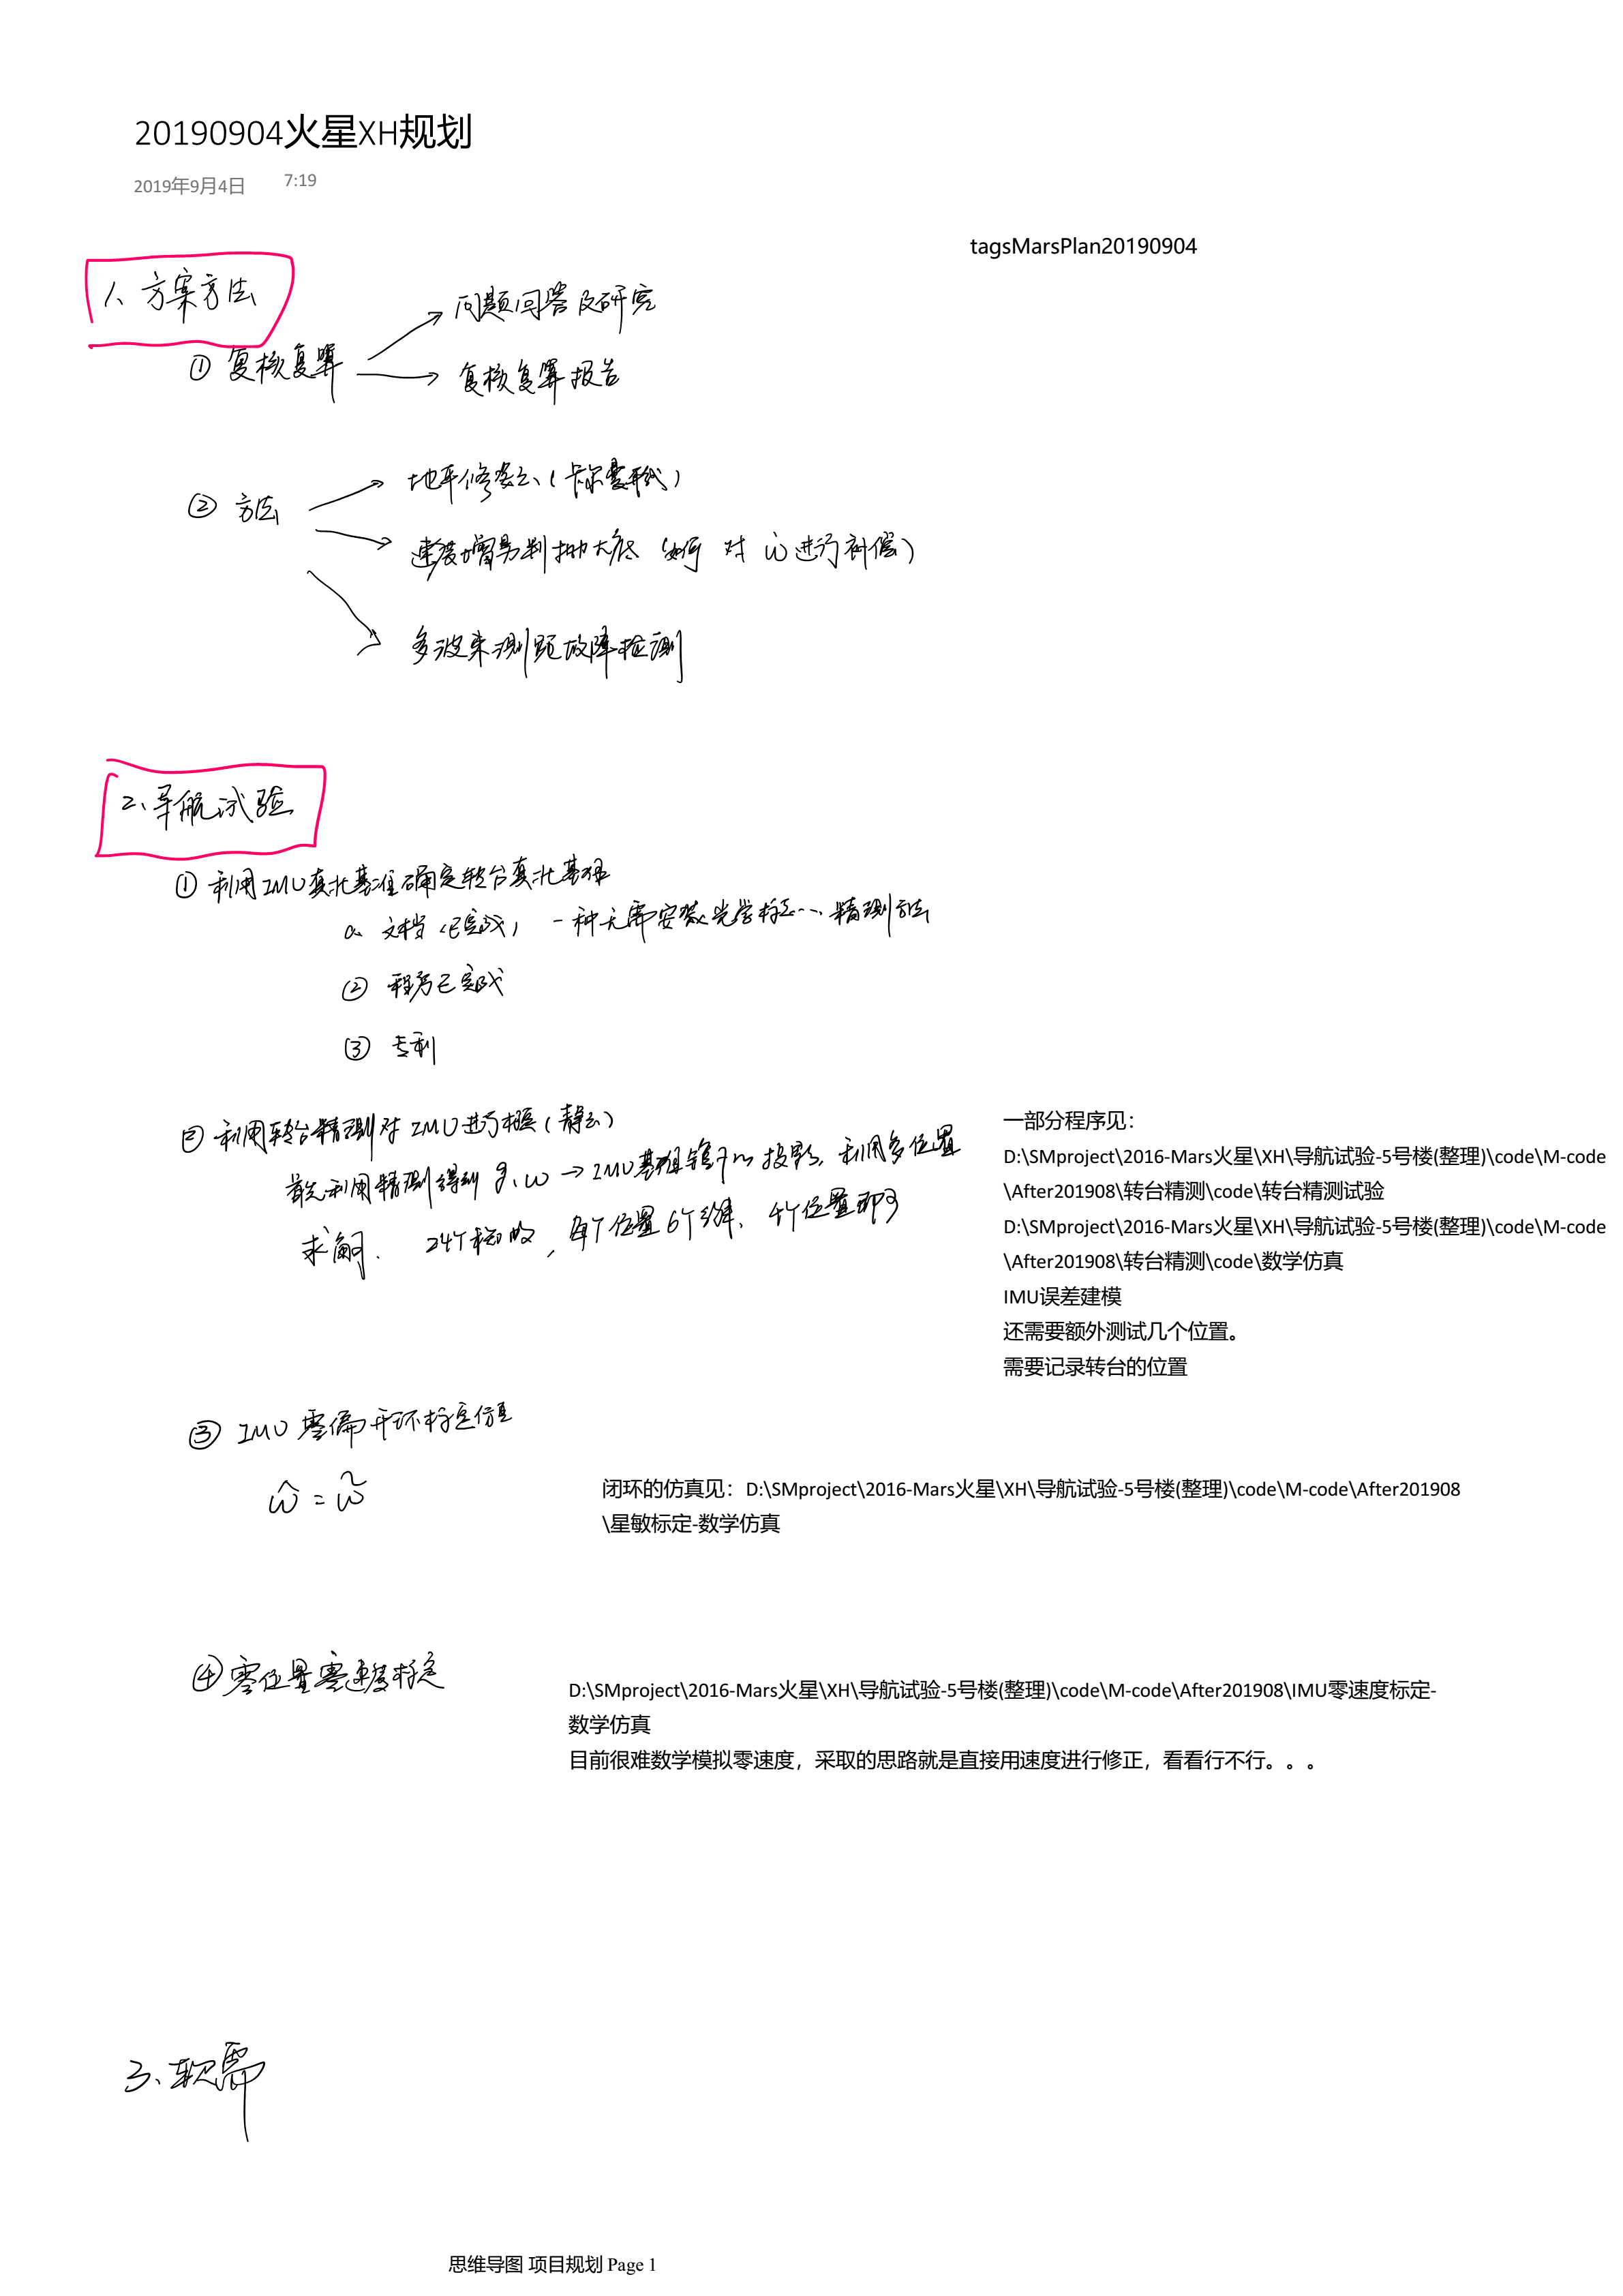 20190904火星XH规划
2019年9月4日 7:19
tagsMarsPlan20190904
1、方案方法
① 复核复算
问题问答及研究
复核复算报告
② 方法
地平修姿(卡尔曼形式)
速度增量判抛大底(如何 对 ẇ 进行补偿)
多波束测距故障检测
2、导航试验
① 利用IMU真北基准确定转台真北基准
a. 文档(已完成) 一种无需安装光学标定… 精测方法
② 程序已完成
③ 专利
② 利用转台精测对IMU进行标定(静态)
首先利用精测得到 g、ω → IMU基准镜下的投影、利用多位置
求解. 24个标, 每个位置6个结果、4个位置即可
③ IMU 零偏开环标定仿真
ω̂ = ω̃
④ 零位置零速度标定
一部分程序见：
D:\SMproject\2016-Mars火星\XH\导航试验-5号楼(整理)\code\M-code
\After201908\转台精测\code\转台精测试验
D:\SMproject\2016-Mars火星\XH\导航试验-5号楼(整理)\code\M-code
\After201908\转台精测\code\数学仿真
IMU误差建模
还需要额外测试几个位置。
需要记录转台的位置
闭环的仿真见：D:\SMproject\2016-Mars火星\XH\导航试验-5号楼(整理)\code\M-code\After201908
\星敏标定-数学仿真
D:\SMproject\2016-Mars火星\XH\导航试验-5号楼(整理)\code\M-code\After201908\IMU零速度标定-
数学仿真
目前很难数学模拟零速度，采取的思路就是直接用速度进行修正，看看行不行。。。
3、软需
思维导图 项目规划 Page 1